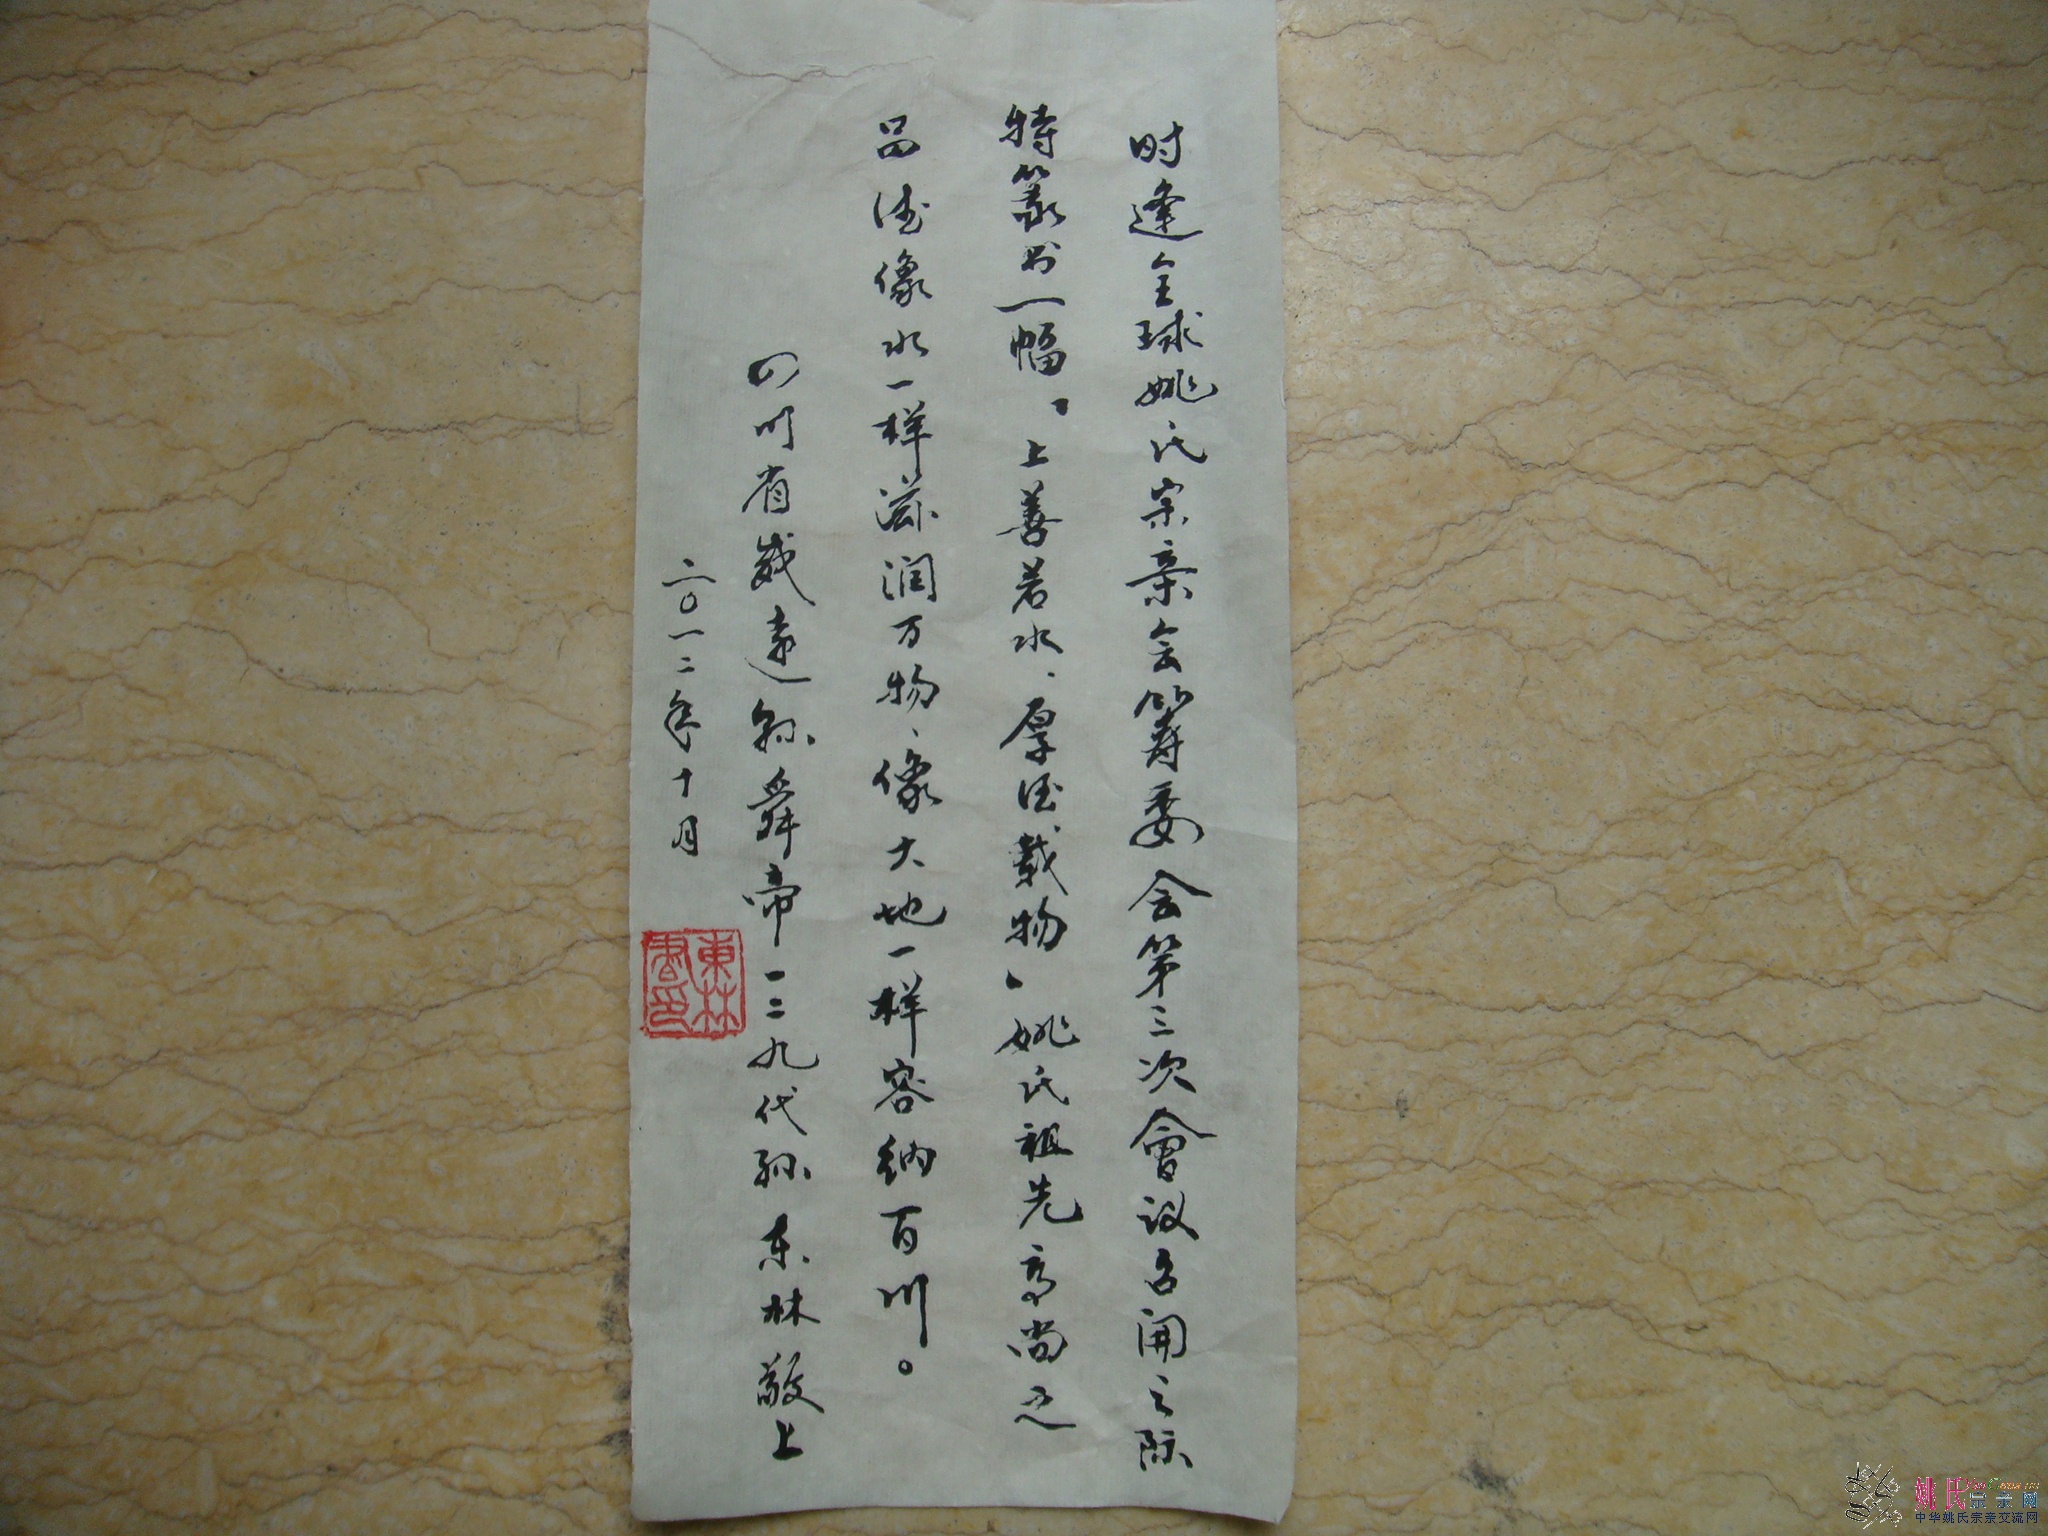 时逢全球姚氏宗亲会筹委会第三次會议召开之际
特篆书一幅“上善若水、厚德载物”姚氏祖先高尚之
品德像水一样滋润万物、像大地一样容纳百川。
四川省威远县舜帝一二九代孙东林敬上
二〇一二年十月
東林書印
姚氏宗亲网
中华姚氏宗亲交流网